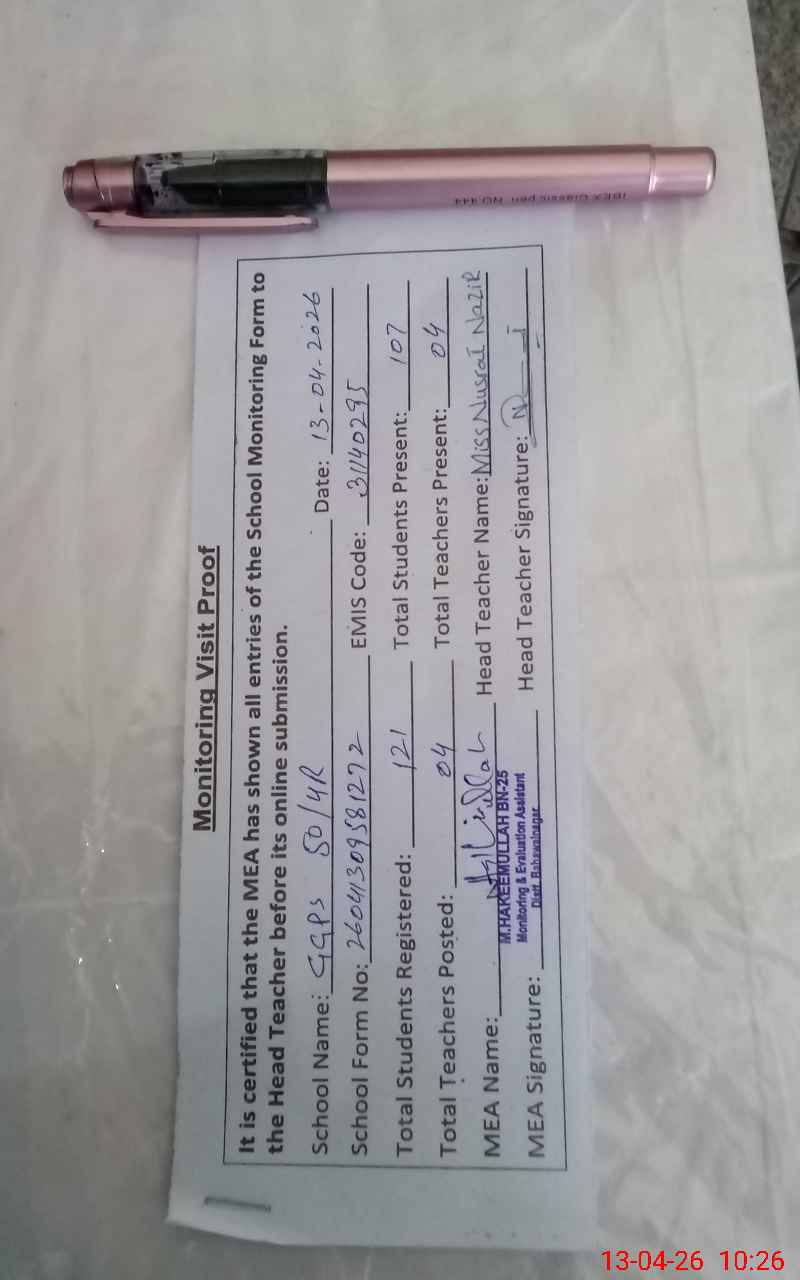 IBEX Classic pen NO 444
Monitoring Visit Proof
It is certified that the MEA has shown all entries of the School Monitoring Form to
the Head Teacher before its online submission.
School Name: GGPS 50/4R Date: 13-04-2026
School Form No: 260413095812​72 EMIS Code: 31140295
Total Students Registered: 121 Total Students Present: 107
Total Teachers Posted: 04 Total Teachers Present: 04
MEA Name: Head Teacher Name: Miss Nusrat Nazir
M.HAKEEMULLAH BN-25
Monitoring & Evaluation Assistant
Distt. Bahawalnagar
MEA Signature: Head Teacher Signature:
13-04-26 10:26